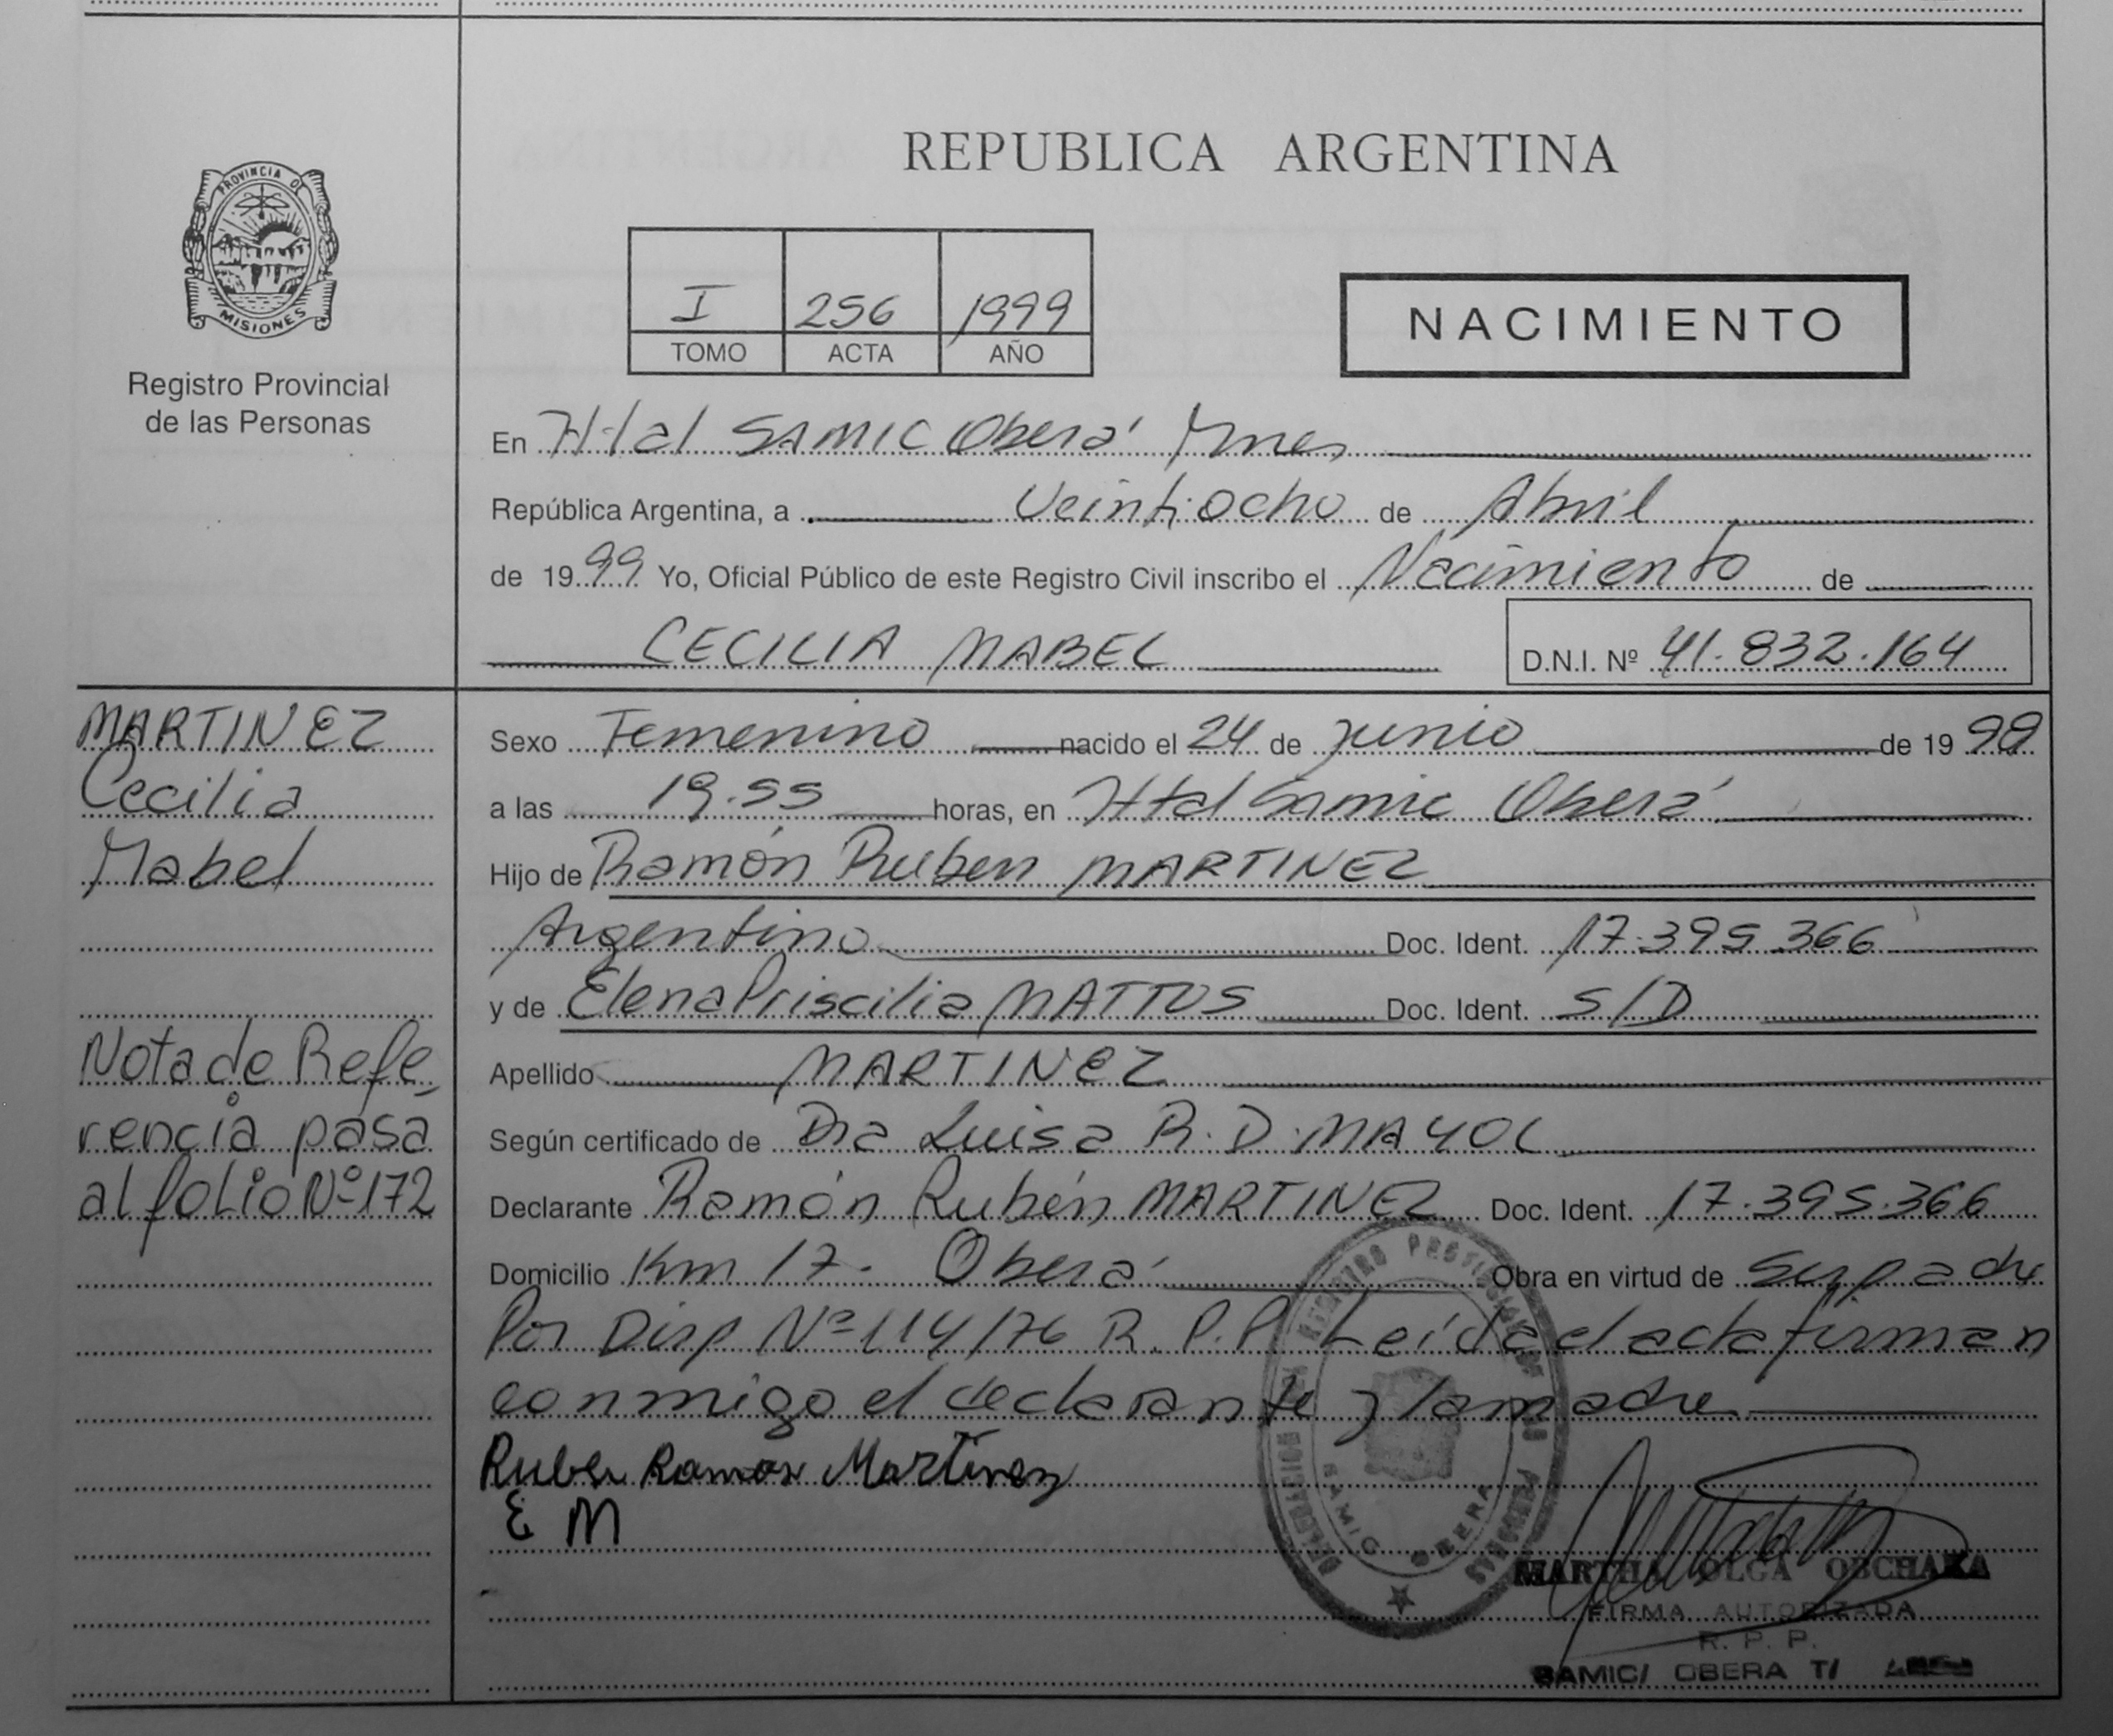 REPUBLICA ARGENTINA
PROVINCIA D
MISIONES
Registro Provincial
de las Personas
I 256 1999
TOMO ACTA AÑO
NACIMIENTO
En Htal SAMIC Oberá Mnes
República Argentina, a Veintiocho de Abril
de 1999 Yo, Oficial Público de este Registro Civil inscribo el Nacimiento de
CECILIA MABEL
D.N.I. Nº 41.832.164
MARTINEZ
Cecilia
Mabel
Nota de Refe-
rencia pasa
al folio Nº 172
Sexo Femenino nacido el 24 de junio de 1998
a las 19.55 horas, en Htal Samic Oberá
Hijo de Ramón Ruben MARTINEZ
Argentino Doc. Ident. 17.395.366
y de Elena Priscilia MATTOS Doc. Ident. S/D
Apellido MARTINEZ
Según certificado de Dra Luisa R. D. MAYOL
Declarante Ramón Rubén MARTINEZ Doc. Ident. 17.395.366
Domicilio Km 17. Oberá Obra en virtud de ser padre
Por Disp Nº 114/76 R.P.P. Leída el acta firman
conmigo el declarante y la madre
Ruben Ramon Martinez
E M
DELEGACION DEL REGISTRO PROVINCIAL DE LAS PERSONAS
SAMIC OBERA
MARTHA OLGA OBCHAKA
FIRMA AUTORIZADA
R. P. P.
SAMIC/ OBERA T/